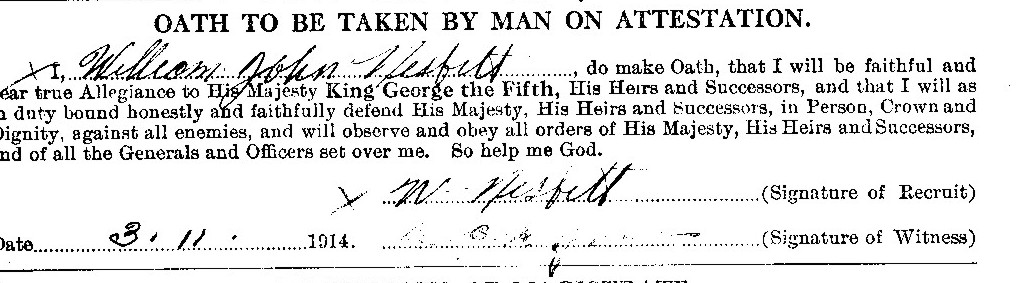 OATH TO BE TAKEN BY MAN ON ATTESTATION.
X I, William John Nesbitt, do make Oath, that I will be faithful and
ear true Allegiance to His Majesty King George the Fifth, His Heirs and Successors, and that I will as
n duty bound honestly and faithfully defend His Majesty, His Heirs and Successors, in Person, Crown and
Dignity, against all enemies, and will observe and obey all orders of His Majesty, His Heirs and Successors,
nd of all the Generals and Officers set over me. So help me God.
X W Nesbitt (Signature of Recruit)
Date 3.11. 1914. (Signature of Witness)